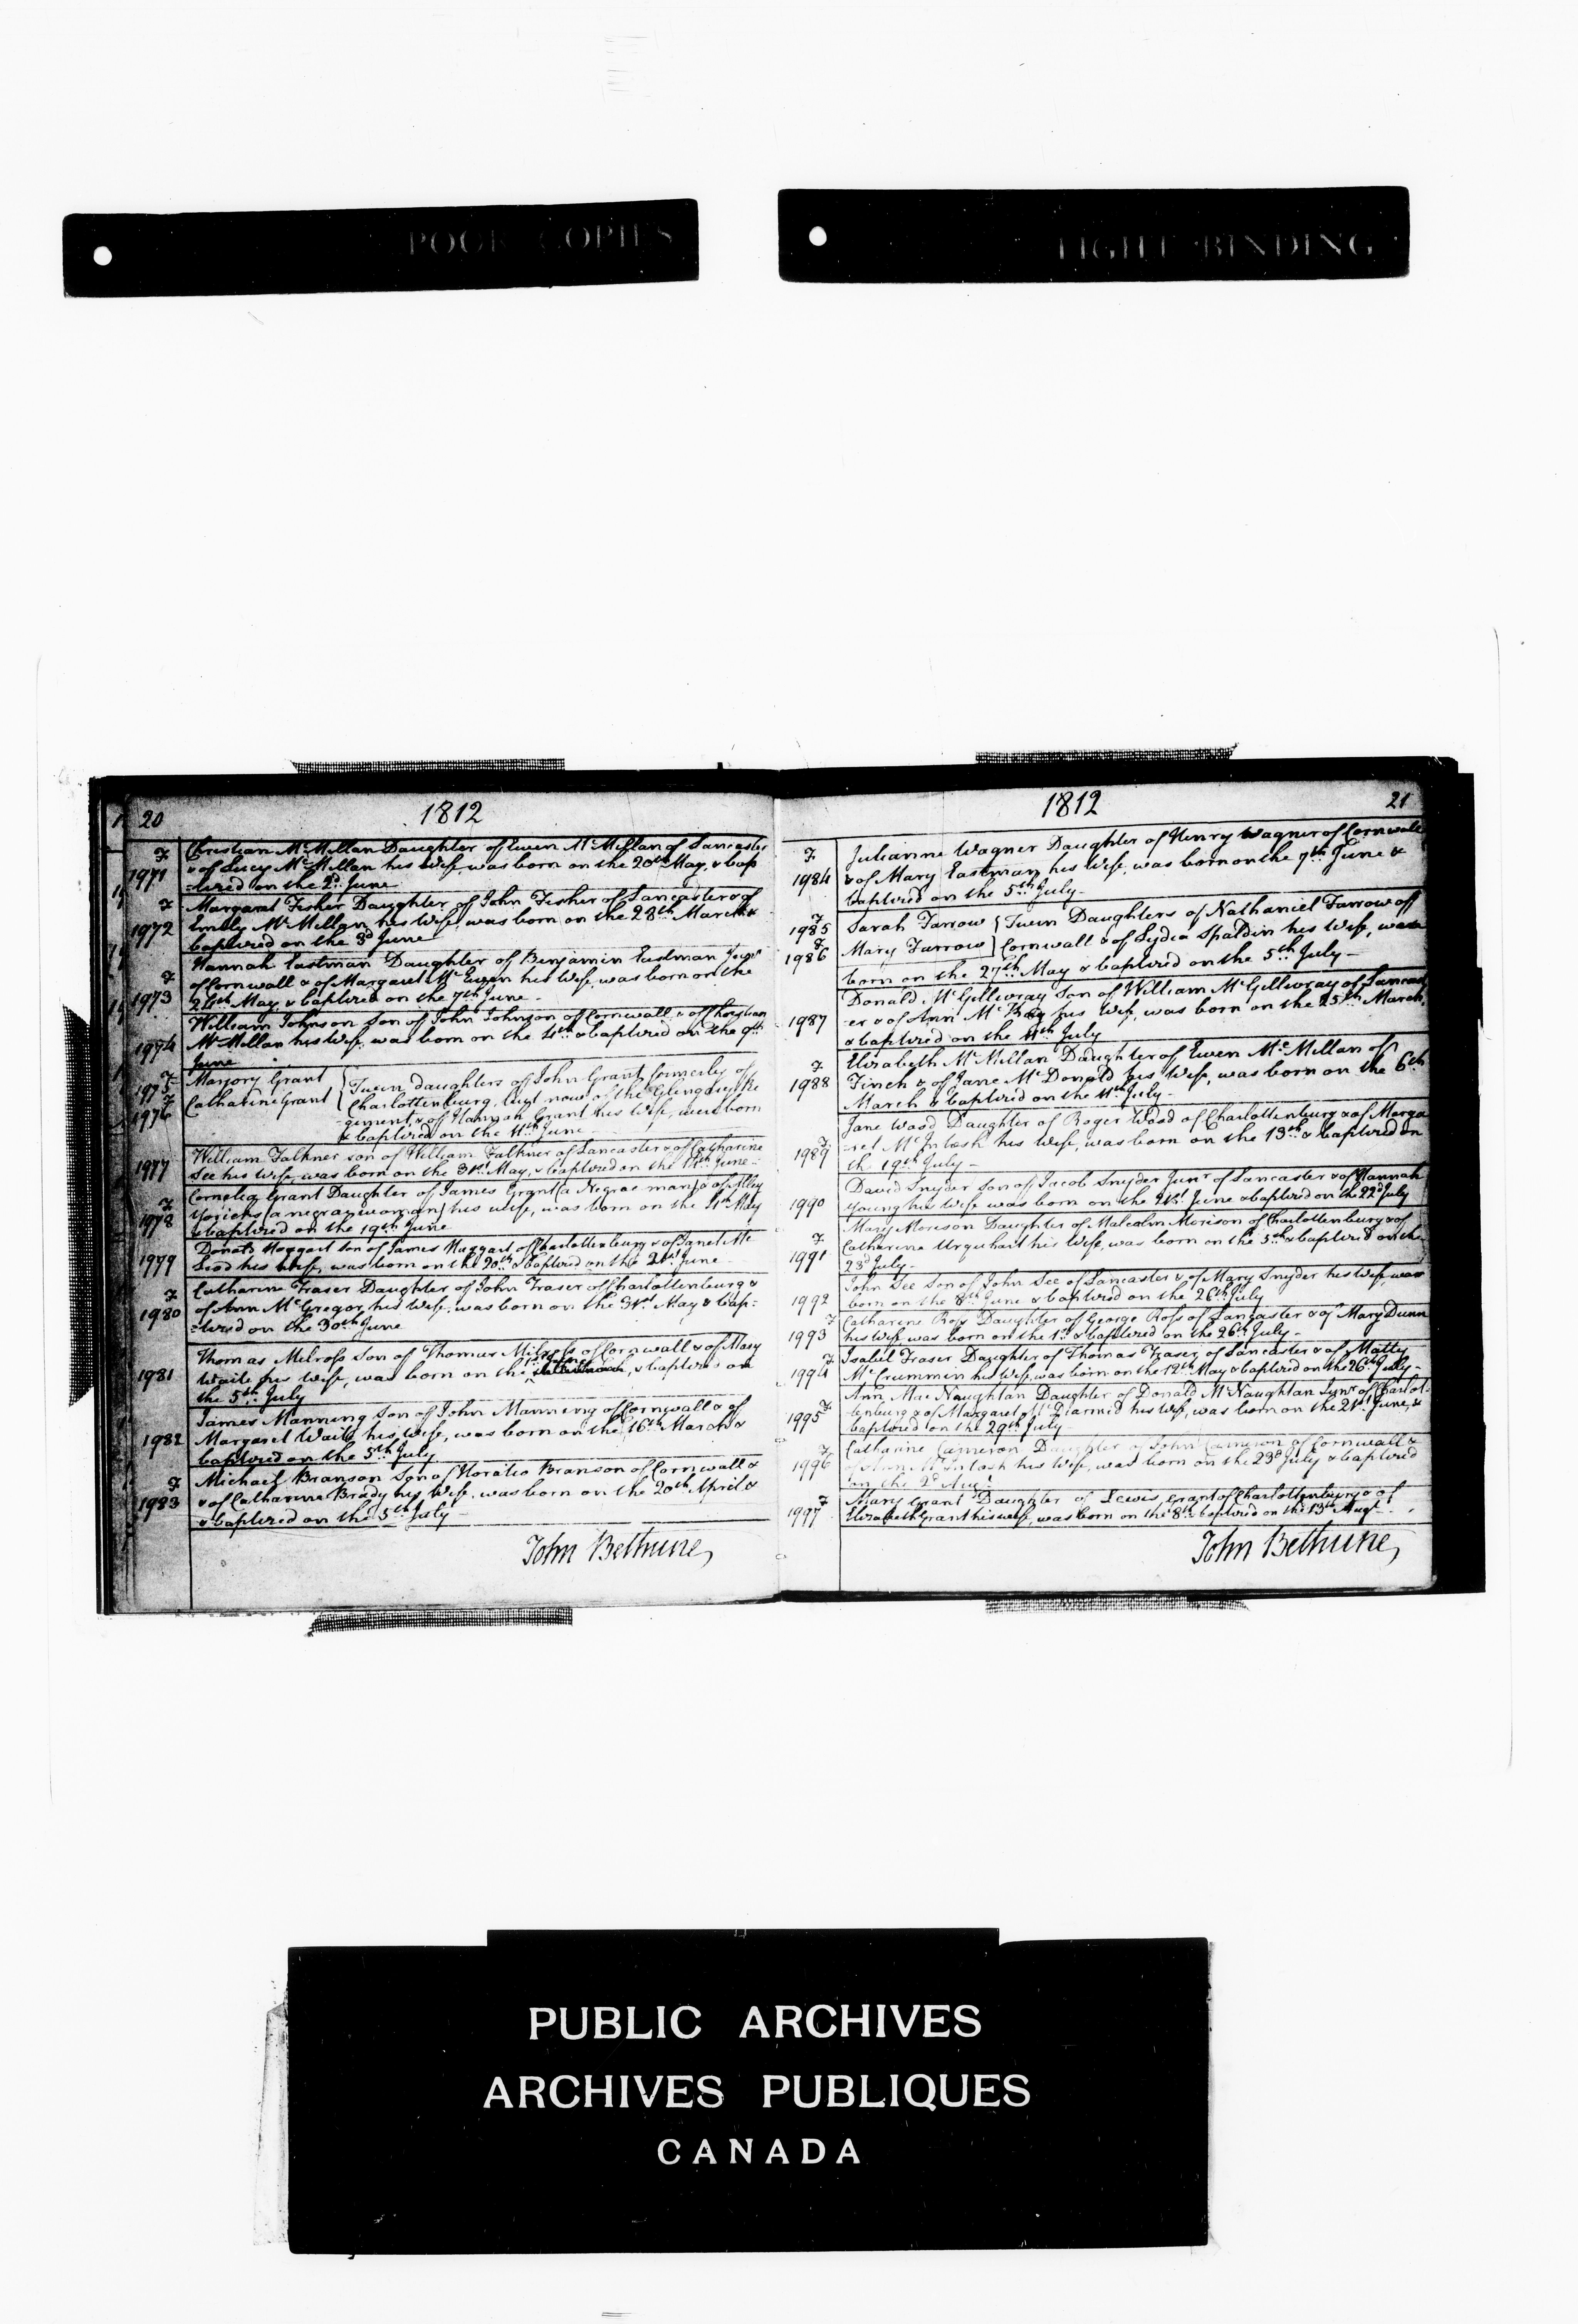 POOR COPIES
TIGHT BINDING
20
1812
F
1971
Christian McMillan Daughter of Ewen McMillan of Lancaster
& of Lucy McMillan his Wife, was born on the 20th May, & bap
-tized on the 2d June
F
1972
Margaret Fisher Daughter of John Fisher of Lancaster & of
Emily McMillan his Wife, was born on the 28th March &
baptized on the 3d June
F
1973
Hannah Eastman Daughter of Benjamin Eastman
of Cornwall & of Margaret McEwen his Wife, was born on the
26th May, & baptized on the 7th June
1974
William Johnson Son of John Johnson of Cornwall & of Christian
McMillan his Wife, was born on the 4th & baptized on the 9th
June
F
1975
F
1976
Marjory Grant
Catharine Grant
Twin daughters of John Grant formerly of
Charlottenburg, but now of the Glengary Re
giment & of Hannah Grant his Wife, were born
& baptized on the 11th June
1977
William Falkner son of William Falkner of Lancaster & of Catharine
See his Wife, was born on the 31st May, & baptized on the June
F
1978
Cornelia Grant Daughter of James Grant (a Negroe man) & of
(a negroe woman) his wife, was born on the 11th May
& baptized on the 19th June
1979
Donald Haggart Son of James Haggart of Charlottenburg & of Janet Mc
Leod his Wife, was born on the 20th & baptized on the 21st June
F
1980
Catharine Fraser Daughter of John Fraser of Charlottenburg &
of Ann McGregor his Wife, was born on the 31st May & bap-
-tized on the 30th June
1981
Thomas Milross Son of Thomas Milross of Cornwall & of Mary
Waite his Wife, was born on the & baptized on
the 5th July
1982
James Manning Son of John Manning of Cornwall & of
Margaret Waite his Wife, was born on the 16th March &
baptized on the 5th July
F
1983
Michael Branson Son of Horatio Branson of Cornwall &
& of Catharine Brady his Wife, was born on the 20th April &
& baptized on the 5th July
John Bethune
1812
21
F
1984
Julianne Wagner Daughter of Henry Wagner of Cornwall
& of Mary Eastman his Wife, was born on the 7th June &
baptized on the 5th July
F
1985
F
1986
Sarah Farrow
Mary Farrow
Twin Daughters of Nathaniel Farrow of
Cornwall & of Lydia Spaldin his Wife, was
born on the 27th May & baptized on the 5th July
1987
Donald McGillivray Son of William McGillivray of Lancast
-er & of Ann McKay his Wife, was born on the 25th March,
& baptized on the 11th July
F
1988
Elizabeth McMillan Daughter of Ewen McMillan of
Finch & of Jane McDonald his Wife, was born on the 6th
March & baptized on the 11th July
F
1989
Jane Wood Daughter of Roger Wood of Charlottenburg & of Marga
-ret McIntosh his Wife, was born on the 13th & baptized on
th 19th July
1990
David Snyder Son of Jacob Snyder Junr of Lancaster & of Hannah
Young his Wife was born on the 21st June & baptized on the 22d July
F
1991
Mary Morison Daughter of Malcolm Morison of Charlottenburg & of
Catharine Urquhart his Wife, was born on the 5th & baptized on the
23d July
1992
John See Son of John See of Lancaster & of Mary Snyder his Wife, was
born on the 8th June & baptized on the 26th July
F
1993
Catharine Ross Daughter of George Ross of Lancaster & of Mary Dunn
his Wife was born on the 1st & baptized on the 26th July
F
1994
Isabel Fraser Daughter of Thomas Fraser of Lancaster & of Matty
McCrummin his Wife, was born on the 12th May & baptized on the 26th July
F
1995
Ann MacNaughtan Daughter of Donald McNaughtan Junr of Charlot-
-tenburg & of Margaret McDiarmid his Wife, was born on the 21st June, &
baptized on the 29th July
F
1996
Catharine Cameron Daughter of John Cameron of Cornwall &
of Ann McIntosh his Wife, was born on the 23d July & baptized
on the 2d Augt
F
1997
Mary Grant Daughter of Lewis Grant of Charlottenburg & of
Elizabeth Grant his Wife, was born on the 8th & baptized on the 13th Augt
John Bethune
PUBLIC ARCHIVES
ARCHIVES PUBLIQUES
CANADA